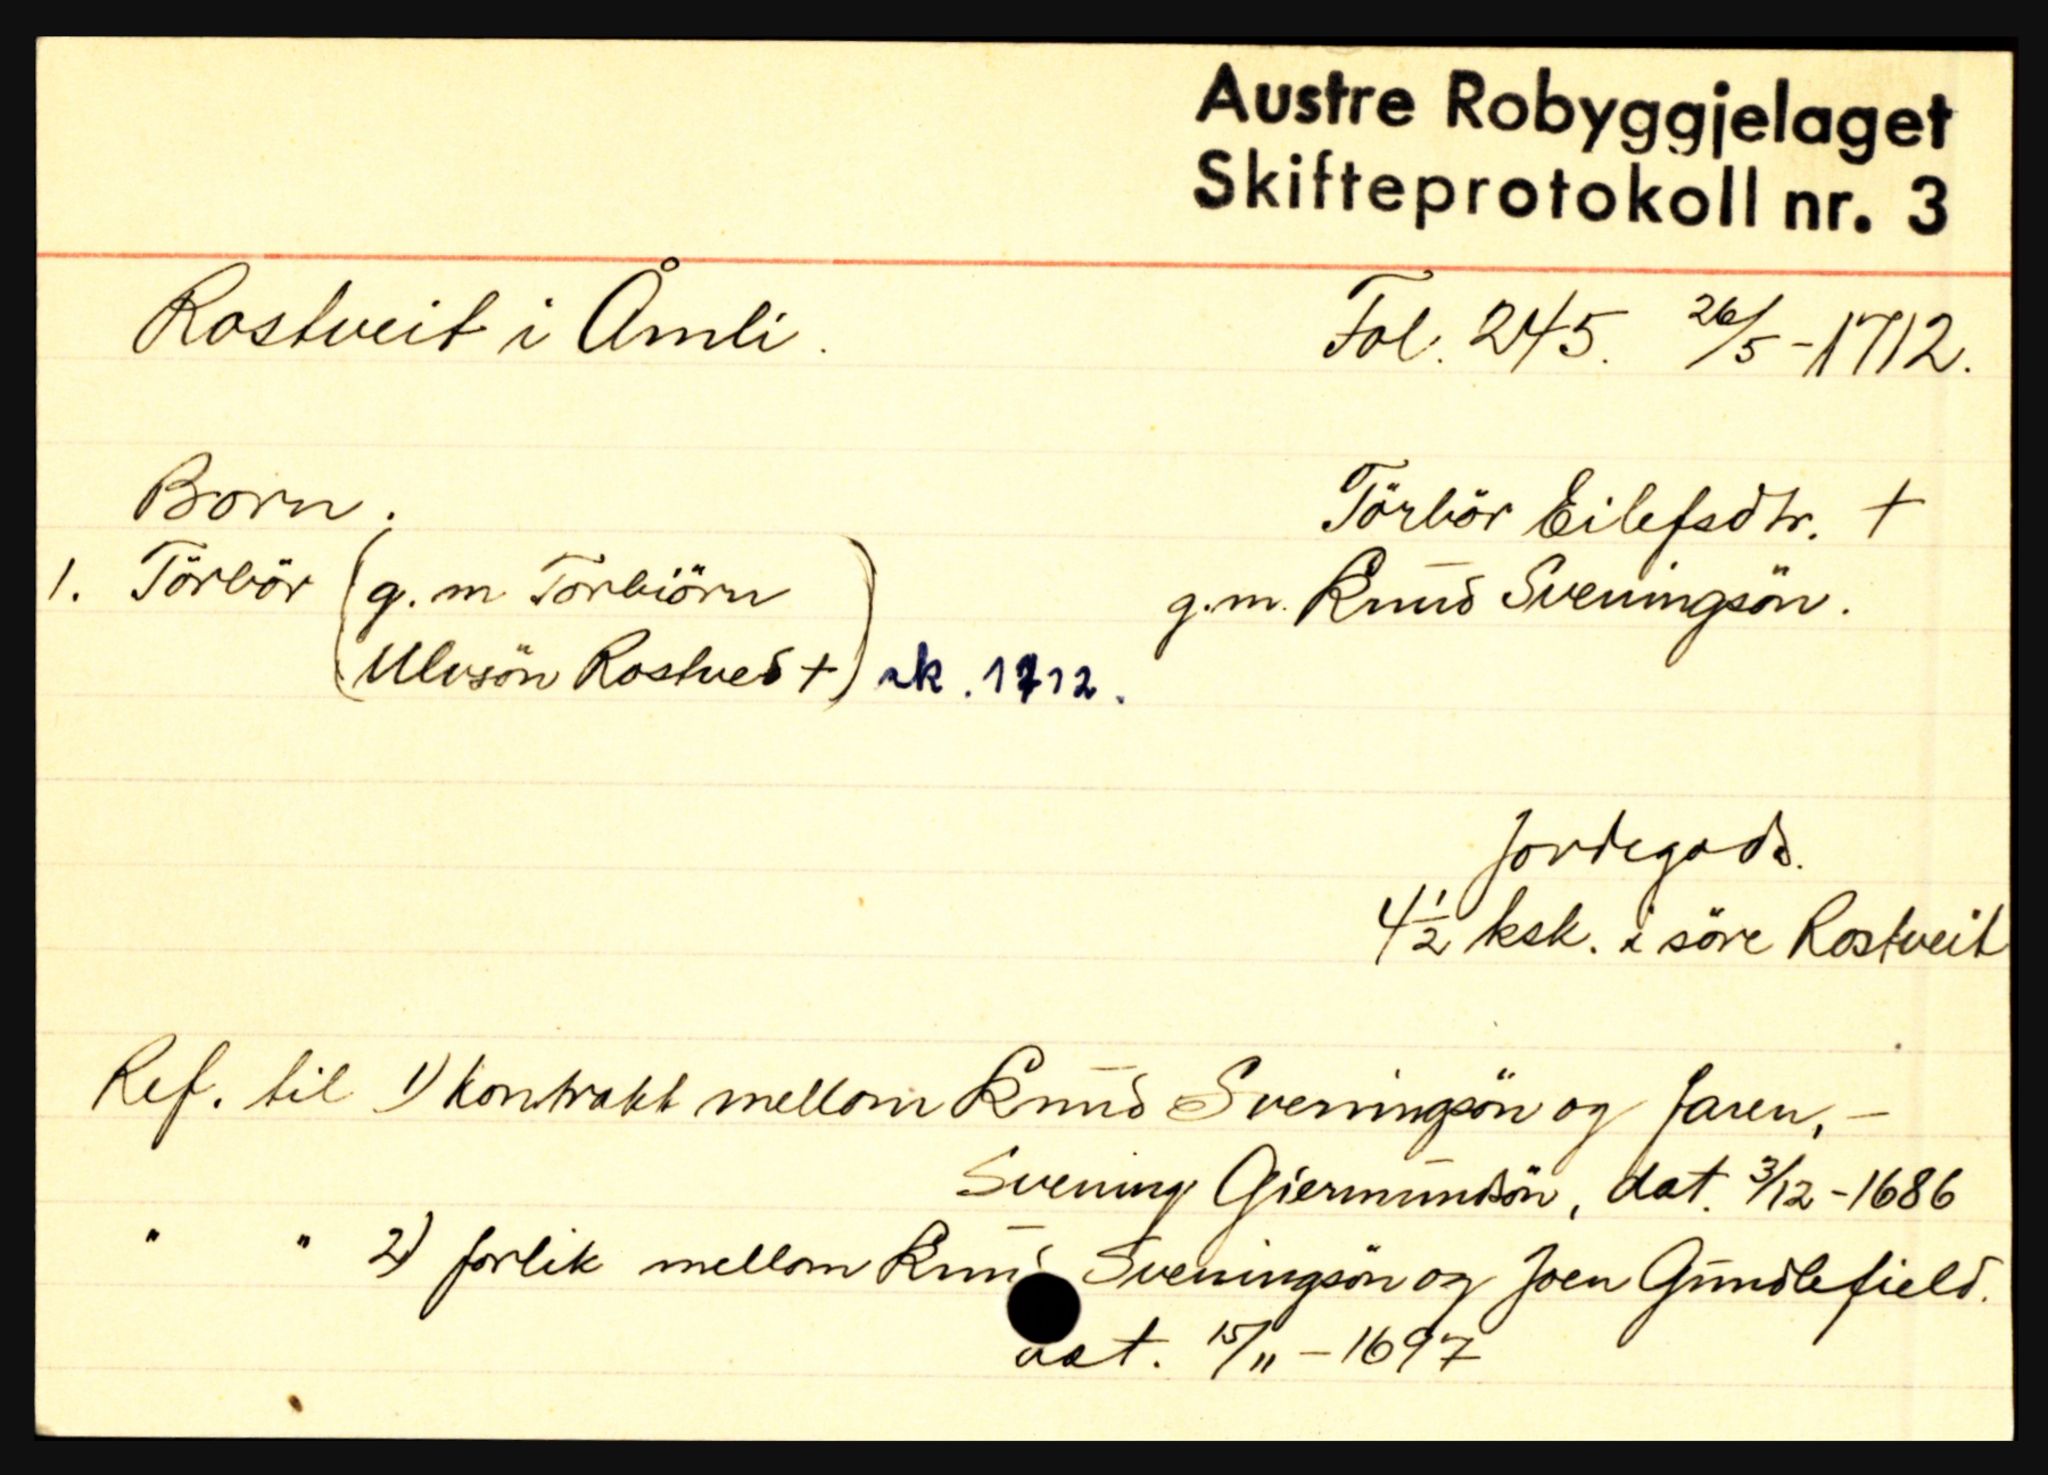 Austre Robyggjelaget
Skifteprotokoll nr. 3
Rostveit i Åmli. Fol. 245. 26/5-1712.
Born. Törbör Eilefsdtr. +
1. Törbör (g. m Torbiörn g.m. Knūd Sveningsön.
Ulvsön Rostved +) sk. 1712.
Jordegods.
4 1/2 ksk. i söre Rostveit
Ref. til 1) kontrakt mellom Knūd Sveningsön og faren, -
Svening Giermūndsön, dat. 3/12 - 1686
" " 2) forlik mellom Knūd Sveningsön og Joen Gūndlefield.
dat. 15/11 - 1697